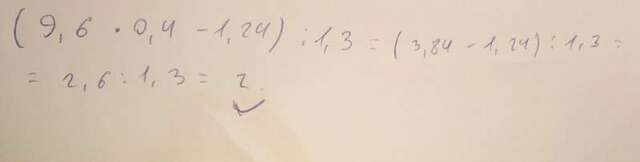 (9,6 · 0,4 - 1,24) : 1,3 = (3,84 - 1,24) : 1,3 =
= 2,6 : 1,3 = 2.